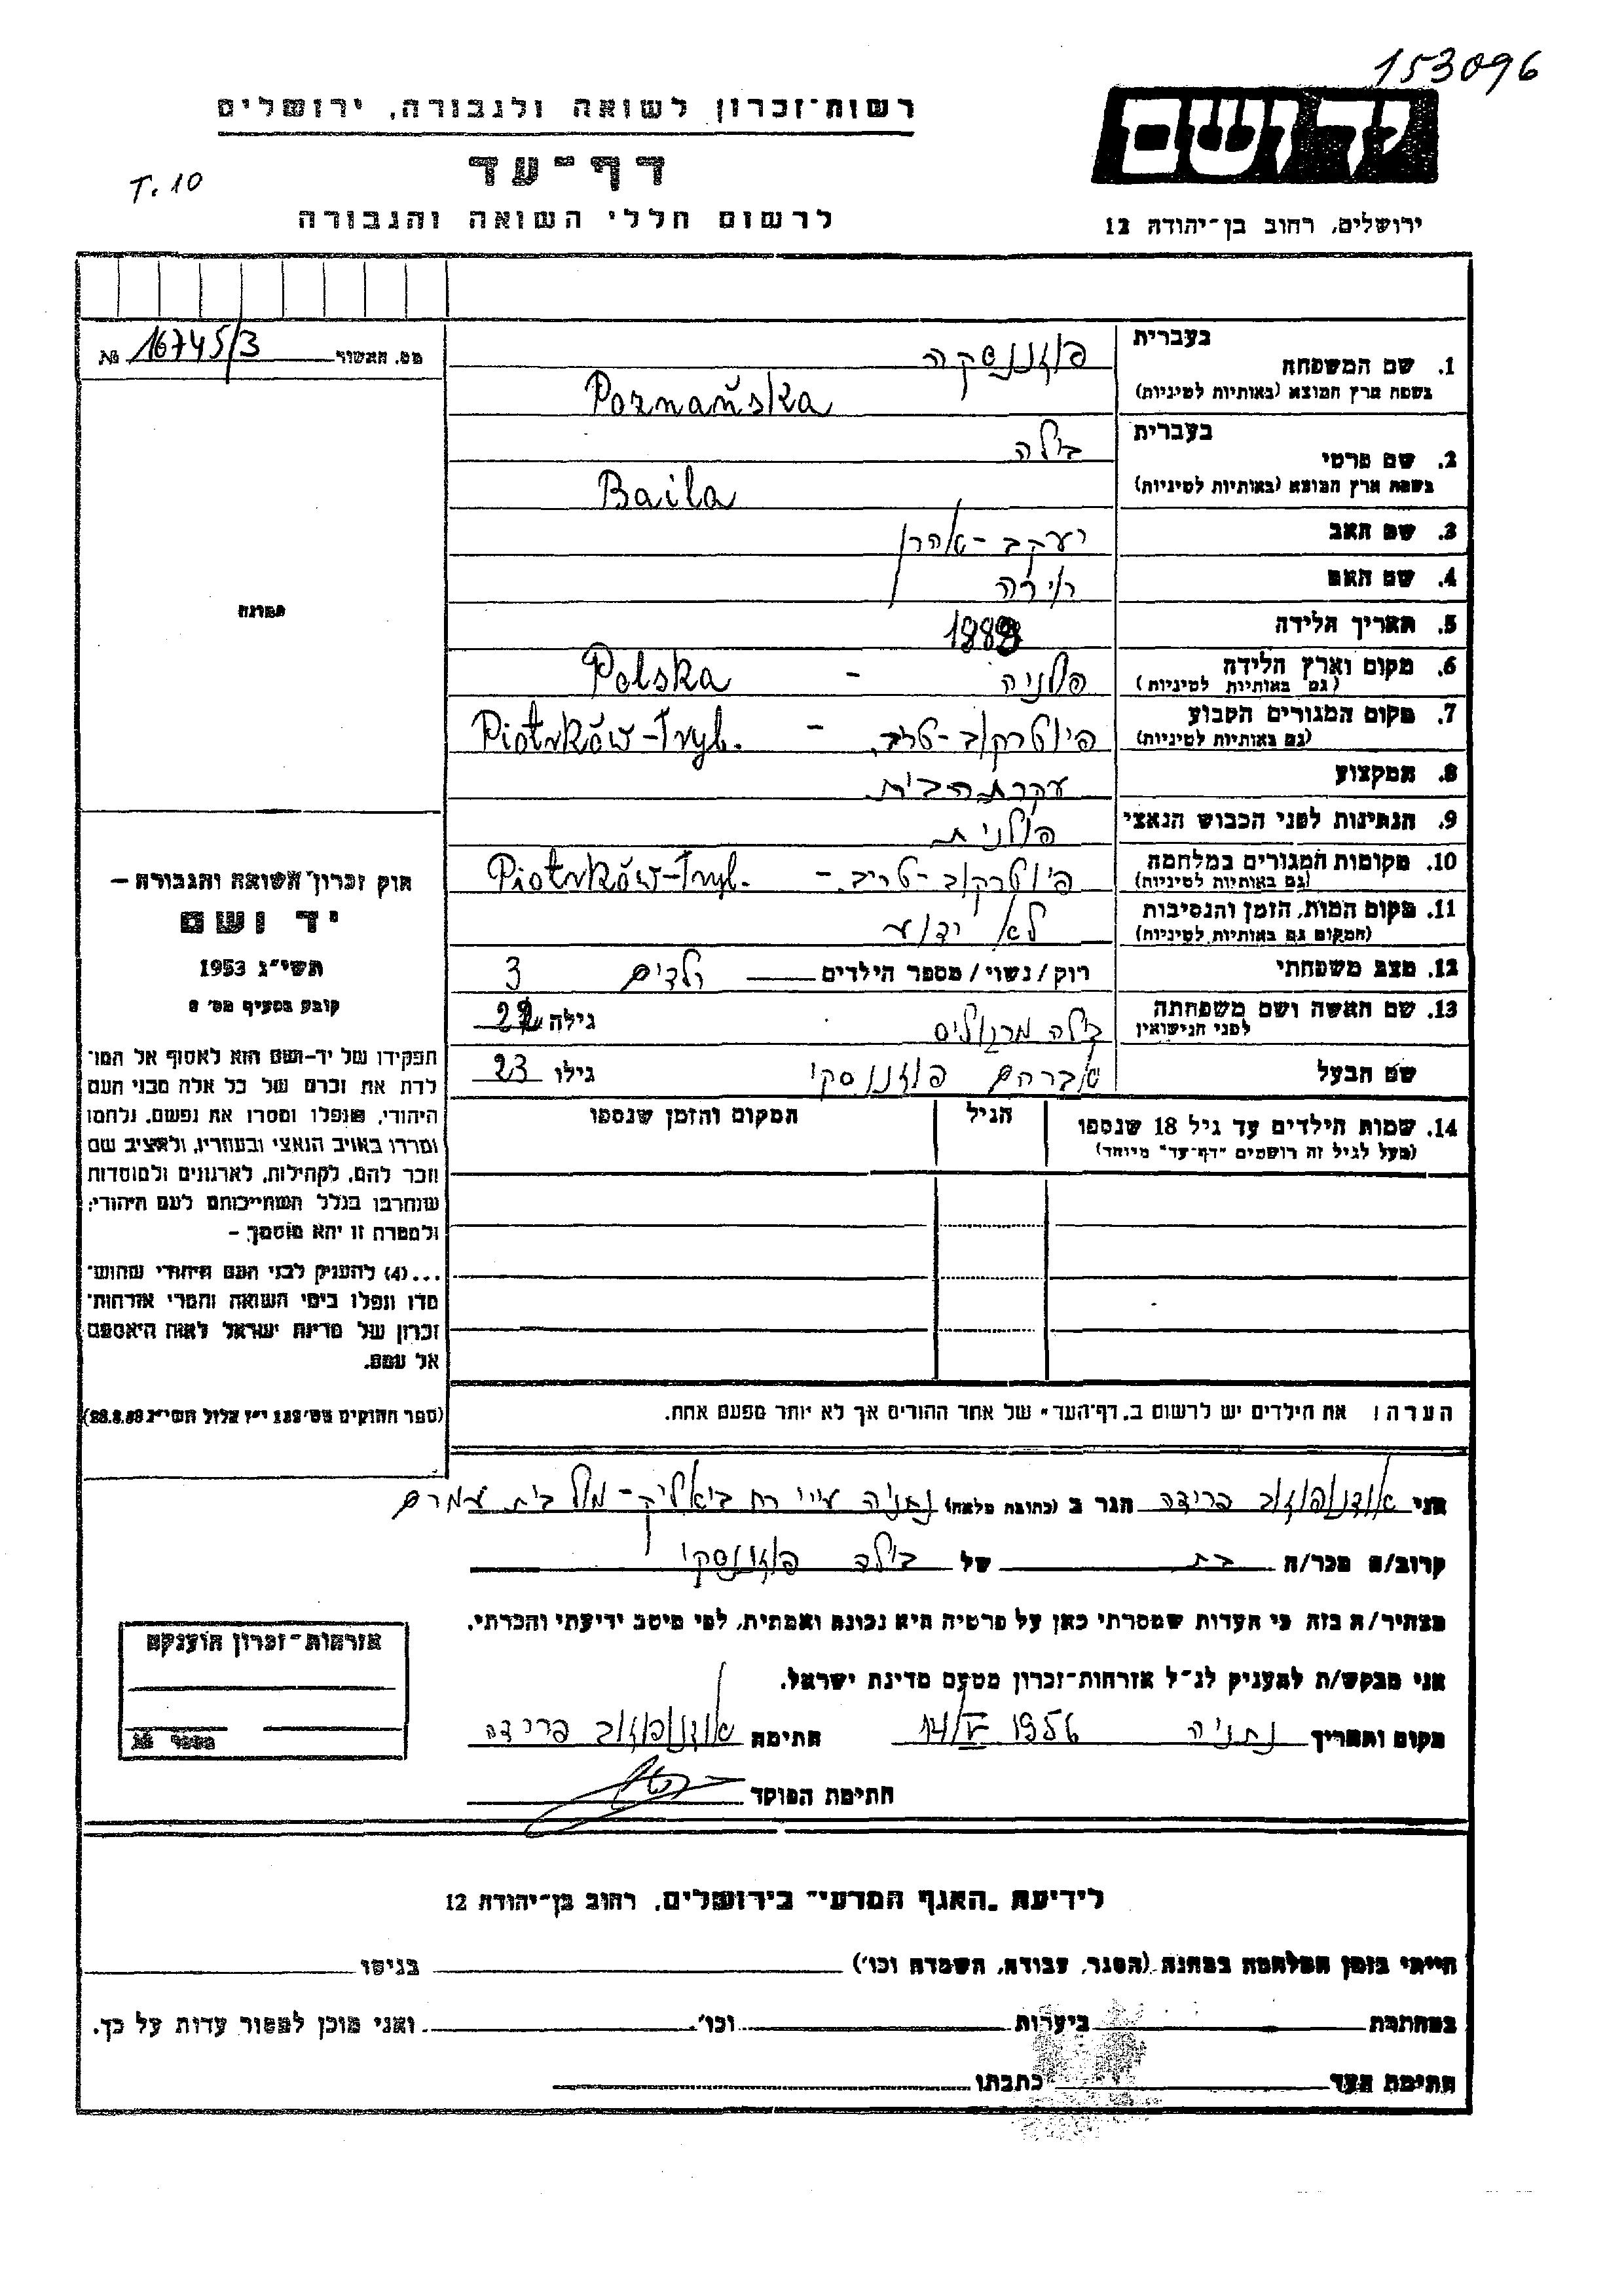 153096
רשות־זכרון לשואה ולגבורה, ירושלים
יד ושם
דף־עד
T.10
לרשום חללי השואה והגבורה
ירושלים, רחוב בן־יהודה 12
מס. האשור № 16745/3
1. שם המשפחה בעברית פוזננסקה
בשפת ארץ המוצא (באותיות לטיניות) Poznańska
2. שם פרטי בעברית בילה
בשפת ארץ המוצא (באותיות לטיניות) Baila
3. שם האב יעקב-אהרן
4. שם האם
5. תאריך הלידה
6. מקום וארץ הלידה (גם באותיות לטיניות) פולניה - Polska
7. מקום המגורים הקבוע (גם באותיות לטיניות) פיוטרקוב-טריב. - Piotrków-Tryb.
8. המקצוע עקרת הבית
9. הנתינות לפני הכבוש הנאצי פולנית
10. מקומות המגורים במלחמה (גם באותיות לטיניות) פיוטרקוב-טריב. - Piotrków-Tryb.
11. מקום המות, הזמן והנסיבות (המקום גם באותיות לטיניות) לא ידוע
12. מצב משפחתי רוק/נשוי/מספר הילדים ילדים 3
13. שם האשה ושם משפחתה לפני הנישואין בילה מרגוליס גילה
שם הבעל אברהם פוזננסקי גילו 23
14. שמות הילדים עד גיל 18 שנספו הגיל המקום והזמן שנספו
(מעל לגיל זה רושמים "דף־עד" מיוחד)
הערה: את הילדים יש לרשום ב"דף־העד" של אחד ההורים אך לא יותר מפעם אחת.
תמונה
חוק זכרון השואה והגבורה –
יד ושם
תשי"ג 1953
קובע בסעיף מס' 2
תפקידו של יד-ושם הוא לאסוף אל המו־
לדת את זכרם של כל אלה מבני העם
היהודי, שנפלו ומסרו את נפשם, נלחמו
ומרדו באויב הנאצי ובעוזריו, ולהציב שם
וזכר להם, לקהילות, לארגונים ולמוסדות
שנחרבו בגלל השתייכותם לעם היהודי;
ולמטרה זו יהא מוסמך –
...(4) להעניק לבני העם היהודי שהוש־
מדו ונפלו בימי השואה והמרי אזרחות־
זכרון של מדינת ישראל לאות היאספם
אל עמם.
(ספר החוקים מס' 132 י"ז אלול תשי"ג 28.8.53)
אני פרידה הגר ב (כתובת מלאה) נתניה רח ביאליק - מול בית עמרם
קרוב/ה מכר/ה בת של בילה פוזננסקי
מצהיר/ה בזה כי העדות שמסרתי כאן על פרטיה היא נכונה ואמתית, לפי מיטב ידיעתי והכרתי.
אני מבקש/ת להעניק לנ"ל אזרחות־זכרון מטעם מדינת ישראל.
מקום ותאריך נתניה 14/V 1956 חתימה פרידה
חתימת הפוקד
אזרחות־זכרון הוענקה
מספר №
לידיעת "האגף המדעי" בירושלים, רחוב בן־יהודה 12
הייתי בזמן המלחמה במחנה (הסגר, עבודה, השמדה וכו') בגיטו
במחתרת ביערות וכו' ואני מוכן למסור עדות על כך.
חתימת העד כתבתו